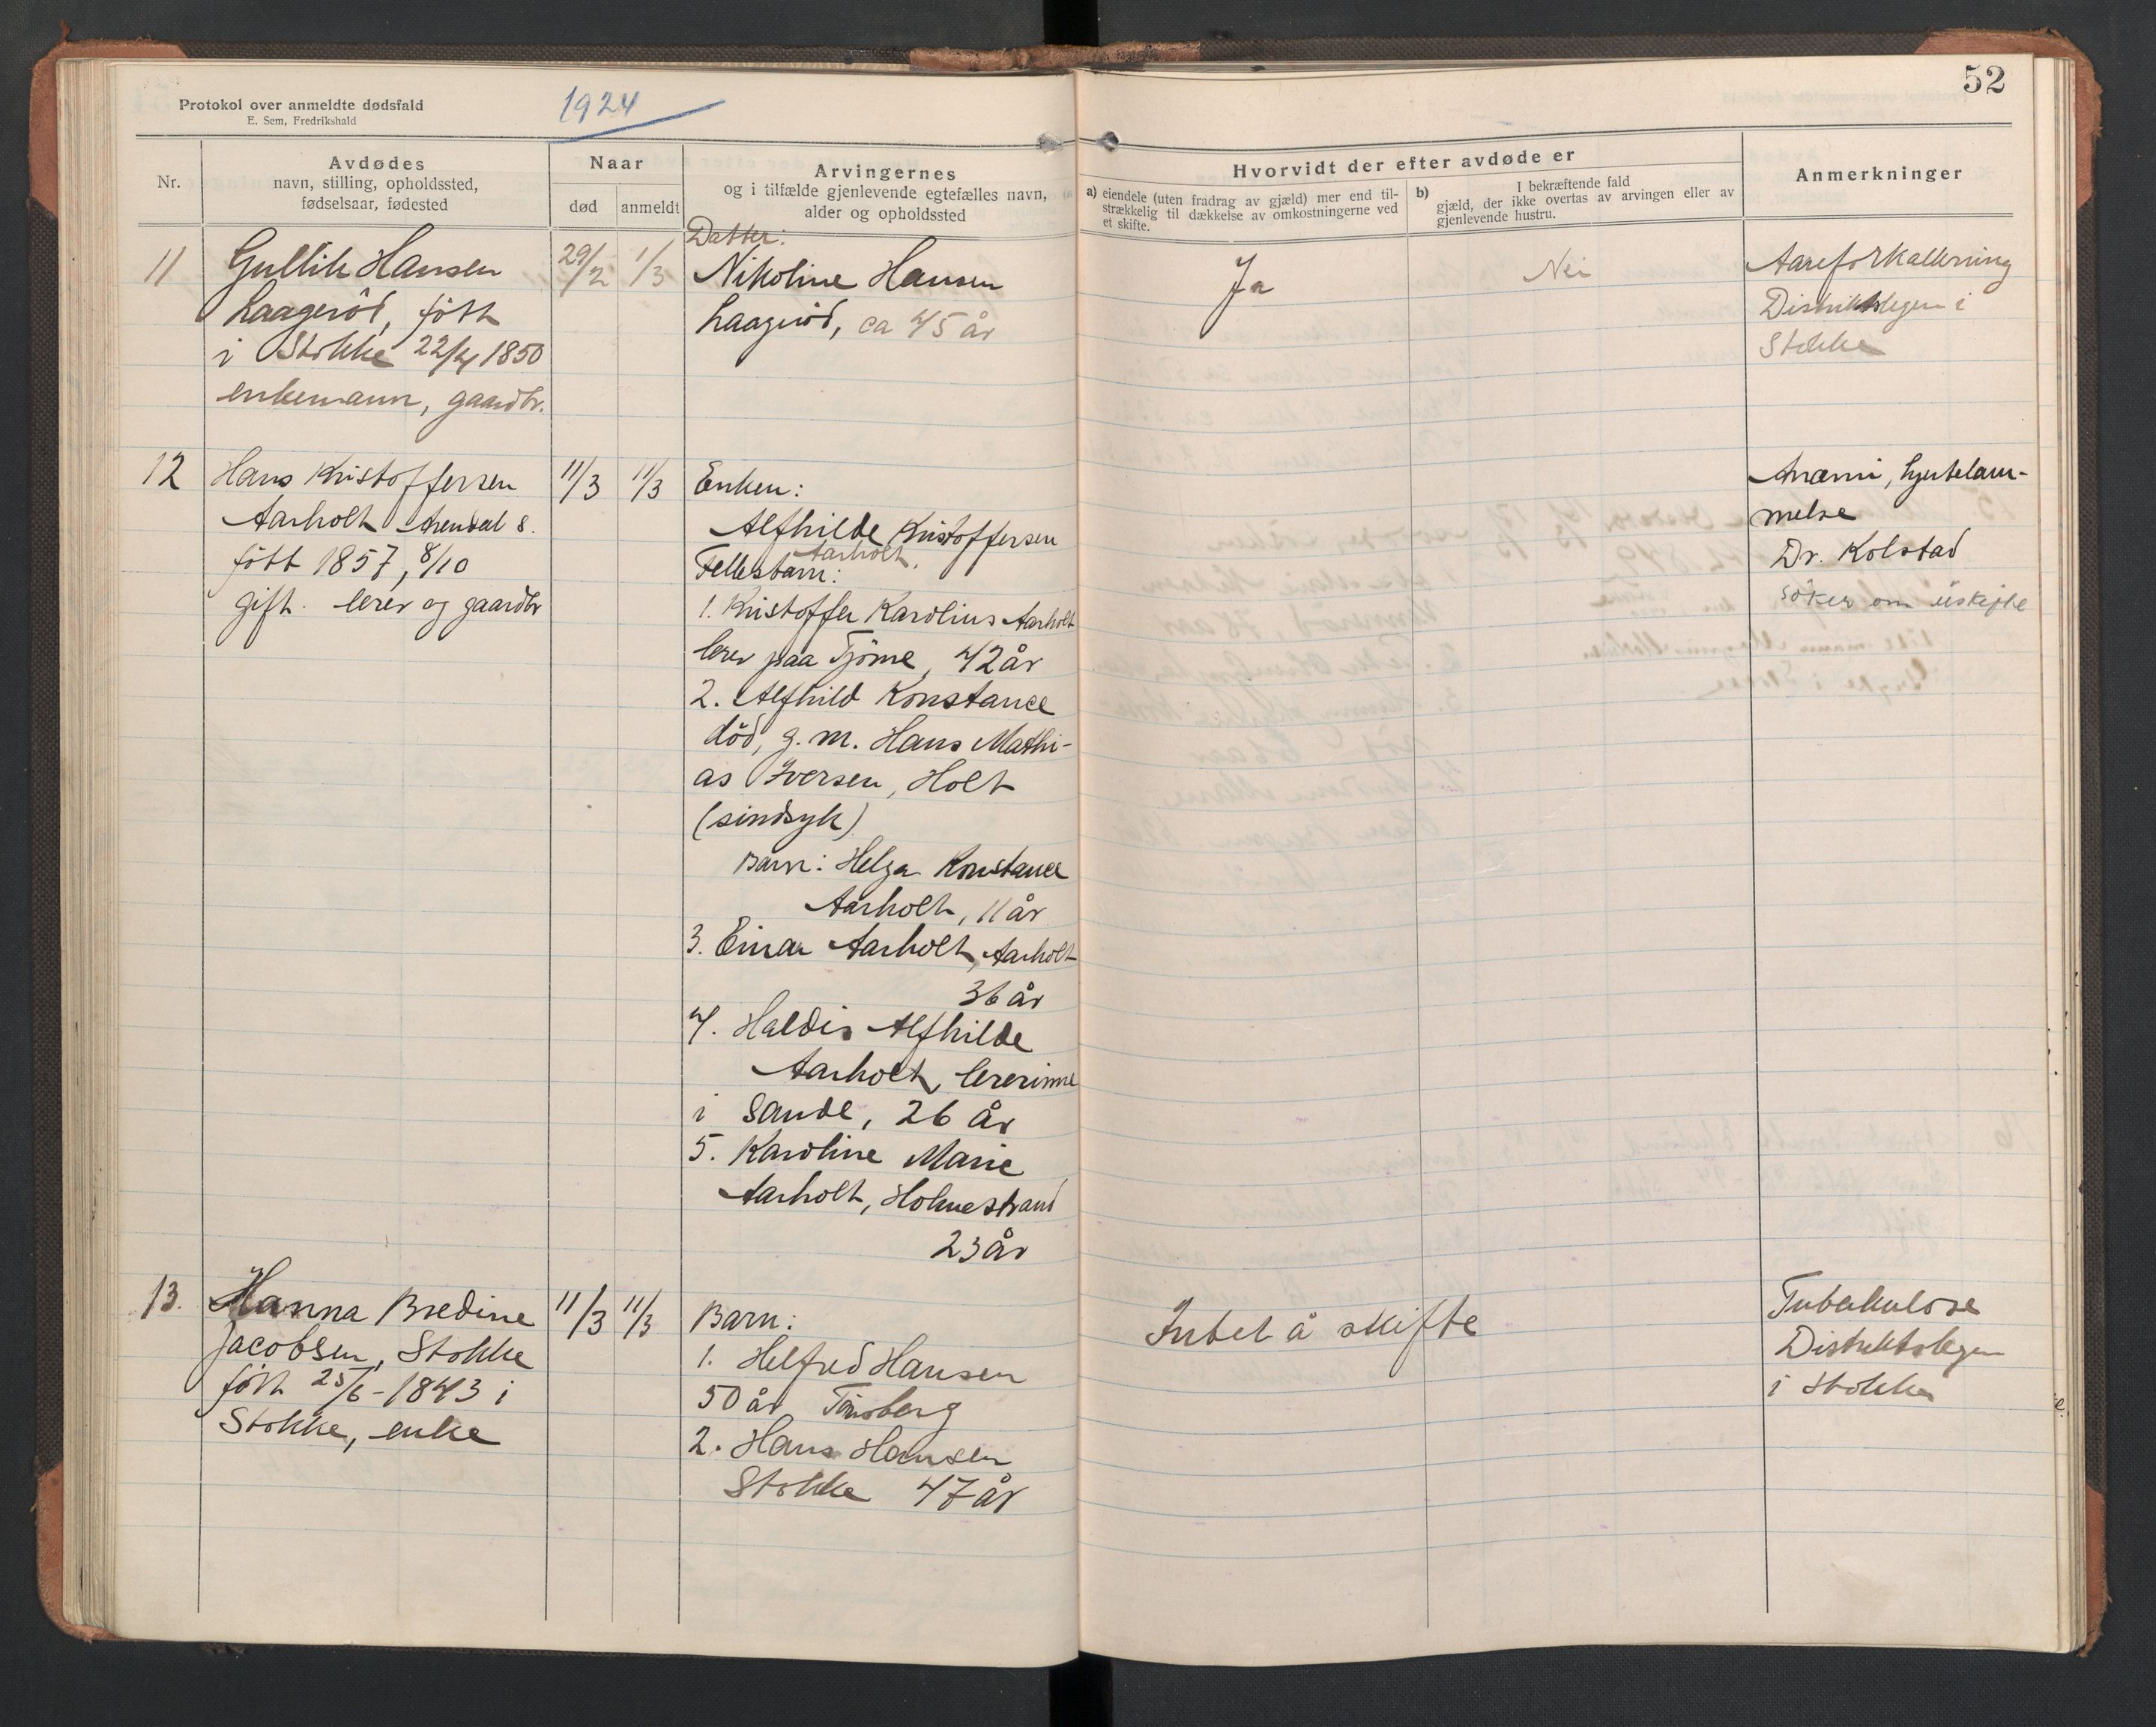 52
Protokol over anmeldte dødsfald
E. Sem, Fredrikshald
1924
Nr.
Avdødes
navn, stilling, opholdssted,
fødselsaar, fødested
Naar
død
anmeldt
Arvingernes
og i tilfælde gjenlevende egtefælles navn,
alder og opholdssted
Hvorvidt der efter avdøde er
a) eiendele (uten fradrag av gjæld) mer end til-
strækkelig til dækkelse av omkostningerne ved
et skifte.
b) I bekræftende fald
gjæld, der ikke overtas av arvingen eller av
gjenlevende hustru.
Anmerkninger
11
Gullik Hansen
Laageröd, född
i Stokke 22/4 1850
enkemann, gaardbr.
29/2
1/3
Datter:
Nikoline Hansen
Laageröd, ca 45 år
Ja
Nei
Aareforkalkning
Distriktslegen i
Stokke
12
Hans Kristoffersen
Aarholt Arendal s.
född 1857, 8/10
gift. lerer og gaardbr
11/3
11/3
Enken:
Alfhilde Kristoffersen
Aarholt.
Fellesbarn:
1. Kristoffer Karolius Aarholt
lerer paa Tjöme, 42 år
2. Alfhild Konstance
död, g. m. Hans Mathi-
as Iversen, Holt
(sindsyk)
Barn: Helga Konstance
Aarholt, 11 år
3. Einar Aarholt, Aarholt
36 år
4. Haldis Alfhilde
Aarholt, lererinne
i Sande, 26 år
5. Karoline Marie
Aarholt, Holmestrand
23 år
Anæmi, hjertelam-
melse
Dr. Kolstad
söker om uskifte
13.
Hanna Bredine
Jacobsen, Stokke
född 25/6-1843 i
Stokke, enke
11/3
11/3
Barn:
1. Helfred Hansen
50 år, Tönsberg
2. Hans Hansen
Stokke 47 år
Intet å skifte
Tuberkulose
Distriktslegen
i Stokke